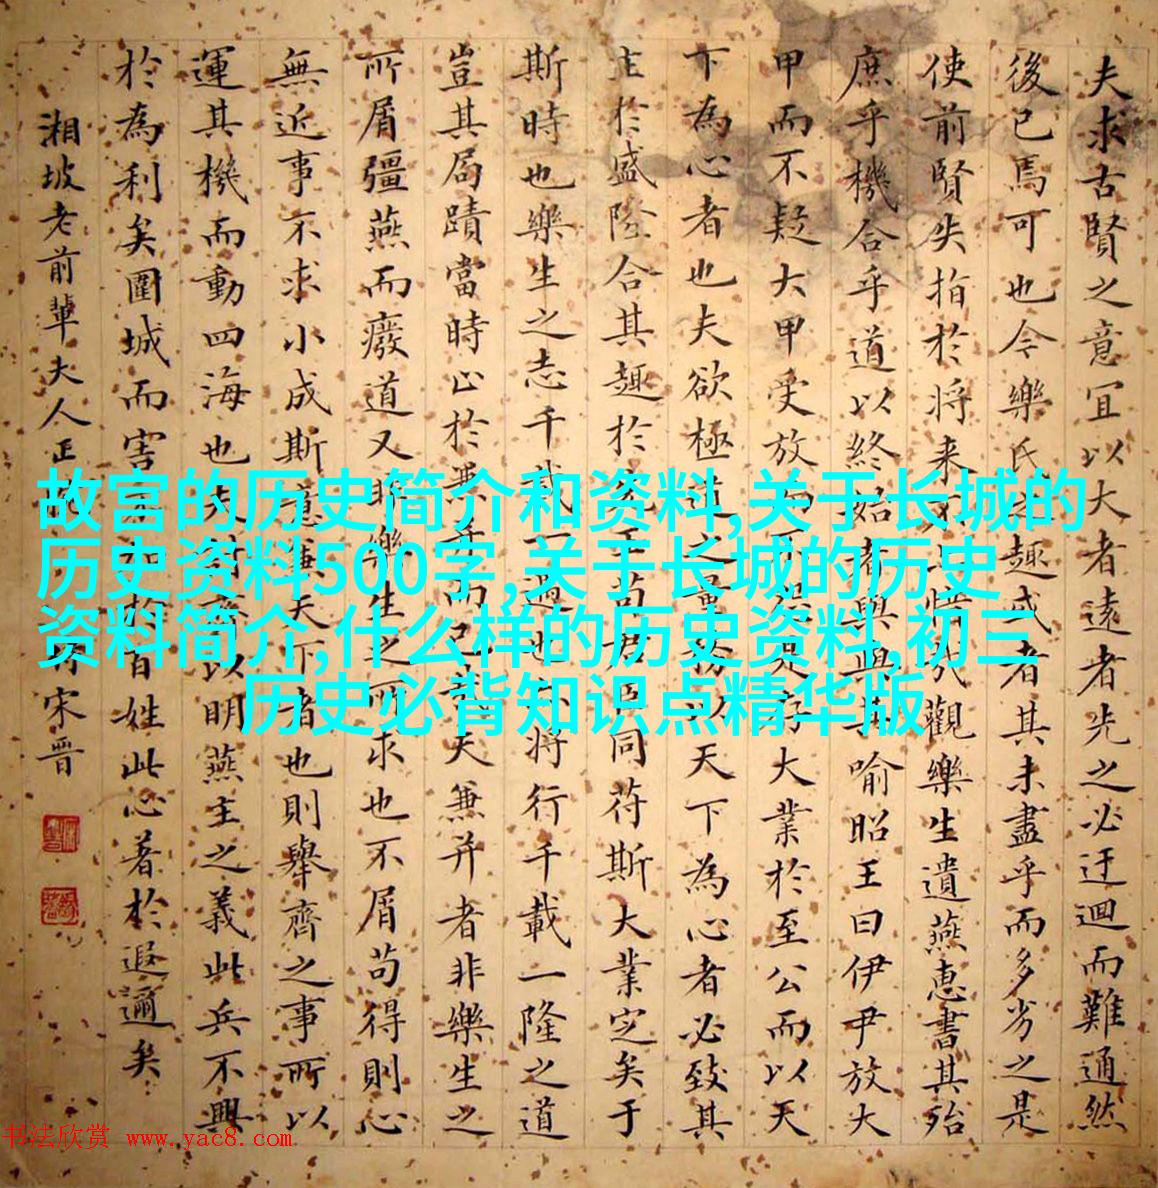 夫求古賢之意宜以大者遠者先之必迂迴而難通然
後已焉可也今樂氏之趣或者其未盡乎而多劣之是
使前賢失指於将来不亦惜哉觀樂生遺燕惠書其殆
庶乎機合乎道以終始者與與其喻昭王曰伊尹放大
甲而不疑大甲受放而不怨是存大業於至公而以天
下為心者也夫欲極道之量務以天下為心者必致其
主於盛隆合其趣於先王苟君臣同苻斯大業定矣于
斯時也樂生之志千載一遇也亦将行千載一隆之道
豈其局蹟當時止於兼并而已哉夫兼并者非樂生之
所屑彊燕而廢道又非樂生之所求也不屑苟得則心
無近事不求小成斯意兼天下者也則舉齊之事所以
運其機而動四海也夫討齊以明燕主之義此兵不興
於為利矣圍城而害不加於百姓此心著於遐邇矣
湘坡老前輩夫人正 宋晋
故宫的历史简介和资料,关于长城的
历史资料500字,关于长城的历史
资料简介,什么样的历史资料,初三
历史必背知识点精华版
书法欣赏 www.yac8.com